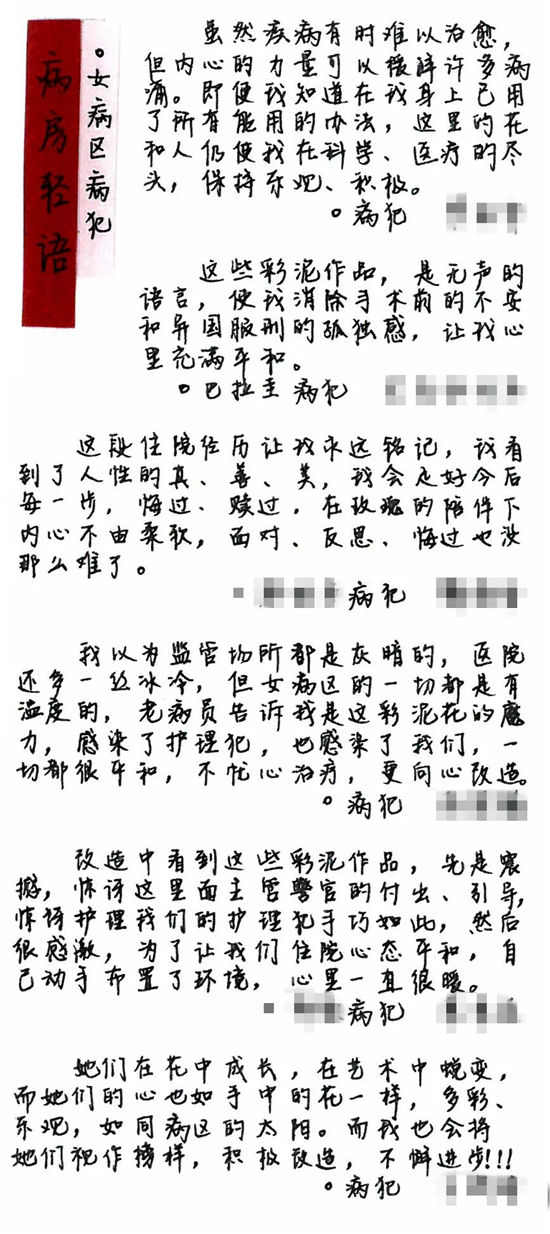 病房轻语
。女病区病犯
虽然疾病有时难以治愈，
但内心的力量可以缓降许多病
痛。即便我知道在我身上已用
了所有能用的办法，这里的花
和人仍使我在科学、医疗的尽
头，保持乐观、积极。
。病犯
这些彩泥作品，是无声的
语言，使我消除手术前的不安
和异国服刑的孤独感，让我心
里充满平和。
。巴拉圭病犯
这段住院经历让我永远铭记，我看
到了人性的真、善、美，我会走好今后
每一步，悔过、赎过，在玫瑰的陪伴下
内心不由柔软，面对、反思、悔过也没
那么难了。
病犯
我以为监管场所都是灰暗的，医院
还多一丝冰冷，但女病区的一切都是有
温度的，老病员告诉我是这彩泥花的魔
力，感染了护理犯，也感染了我们，一
切都很平和，不忧心治疗，更向心改造。
。病犯
改造中看到这些彩泥作品，先是震
撼，惊讶这里面主管警官的付出、引导，
惊讶护理我们的护理犯手巧如此，然后
很感激，为了让我们住院心态平和，自
己动手布置了环境，心里一直很暖。
病犯
她们在花中成长，在艺术中蜕变，
而她们的心也如手中的花一样，多彩、
乐观，如同病区的太阳。而我也会将
她们视作榜样，积极改造，不懈进步!!!
。病犯